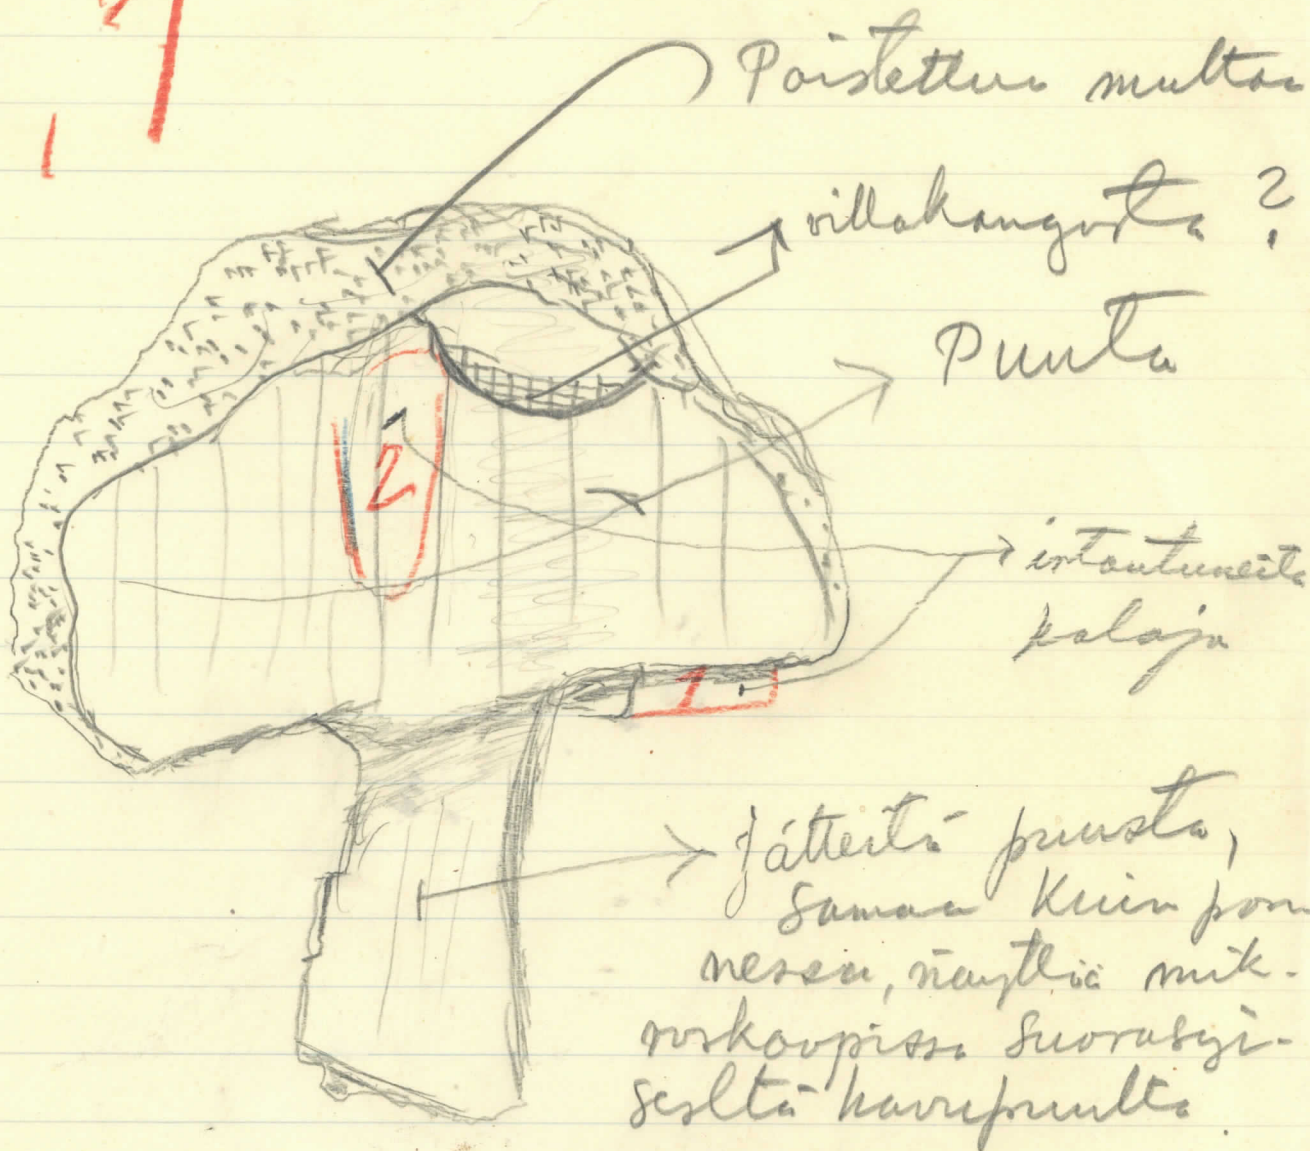 Poistettua multaa
villakangasta ?
Puuta
2
irtautuneita
paloja
1
Jätteitä puusta,
samaa kuin pon-
nessa, näyttää mik-
roskoopissa suorasyi-
seltä havupuulta.